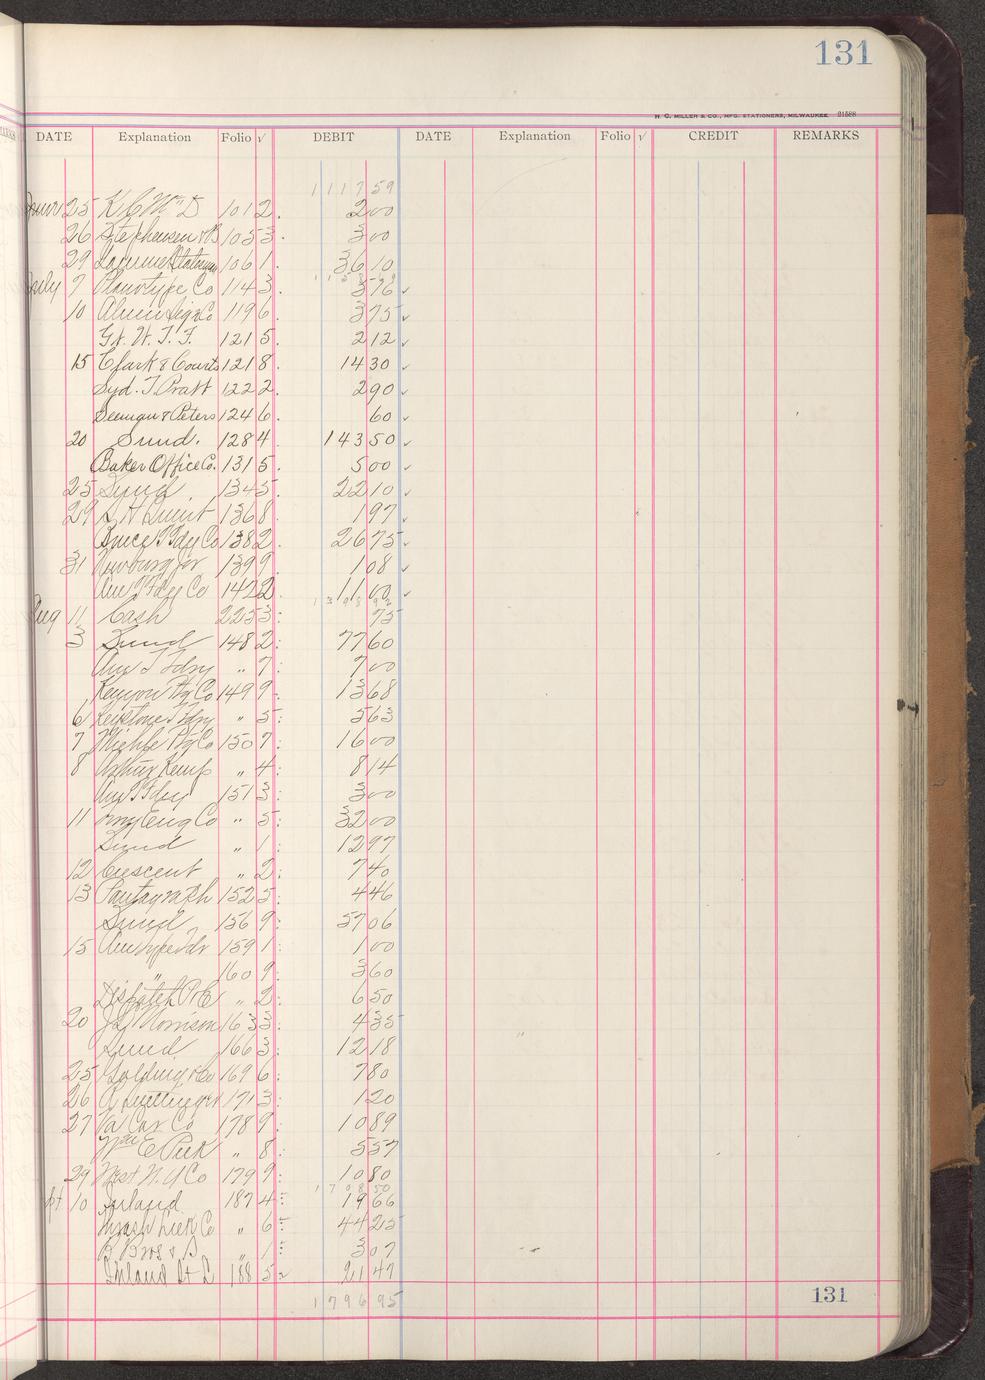 131
H. C. MILLER & CO., MFG. STATIONERS, MILWAUKEE 21588
DATE Explanation Folio √ DEBIT DATE Explanation Folio √ CREDIT REMARKS
1117 59
25 K C 101 2. 2 00
26 Stephensen & B 105 3. 3 00
29 106 1. 36 10
July 7 Co 114 3. 3 76 ✓
10 Co 119 6. 3 75 ✓
Gt. W. T. F. 121 5. 2 12 ✓
15 Clark & Courts 121 8. 14 30 ✓
Syd. T. Pratt 122 2. 2 90 ✓
Seeman & Peters 124 6. 60 ✓
20 Sund. 128 4. 143 50 ✓
Baker Office Co. 131 5. 5 00 ✓
25 Sund 134 5. 22 10 ✓
29 136 8. 1 97 ✓
Bruce T Fdy Co 138 2. 26 75 ✓
31 Newburg Jor 139 9. 1 08 ✓
Am T Fdy Co 142 2. 11 00 ✓
Aug 11 Cash 225 3: 75
3 Sund 148 2: 77 60
Am T Fdry " 7: 7 00
Kenyon Co 149 9: 13 68
6 Keystone T Fdry " 5: 5 63
7 Miehle P Co 150 7: 16 00
8 Arthur Kemp " 4: 8 14
Am T Fdry 151 3: 3 00
11 Eng Co " 5: 32 00
Sund " 1: 12 97
12 Crescent " 2: 7 40
13 Pantagraph 152 5: 4 46
Sund 156 9: 57 06
15 Am type fdr 159 1: 1 00
" 160 9: 3 60
Dispatch P. Co " 2: 6 50
20 Morrison 163 3: 4 35
Sund 166 3: 12 18
25 Golding & Co 169 6: 7 80
26 171 3: 1 20
27 Va Car Co 178 9: 10 89
Wm E Peck " 8: 5 57
29 West N. U Co 179 9: 10 80
1708 50
10 Inland 187 4: 19 66
Co " 6: 44 25
B Bros & S " 1: 3 07
Inland St 188 5 21 47
1796 95
131